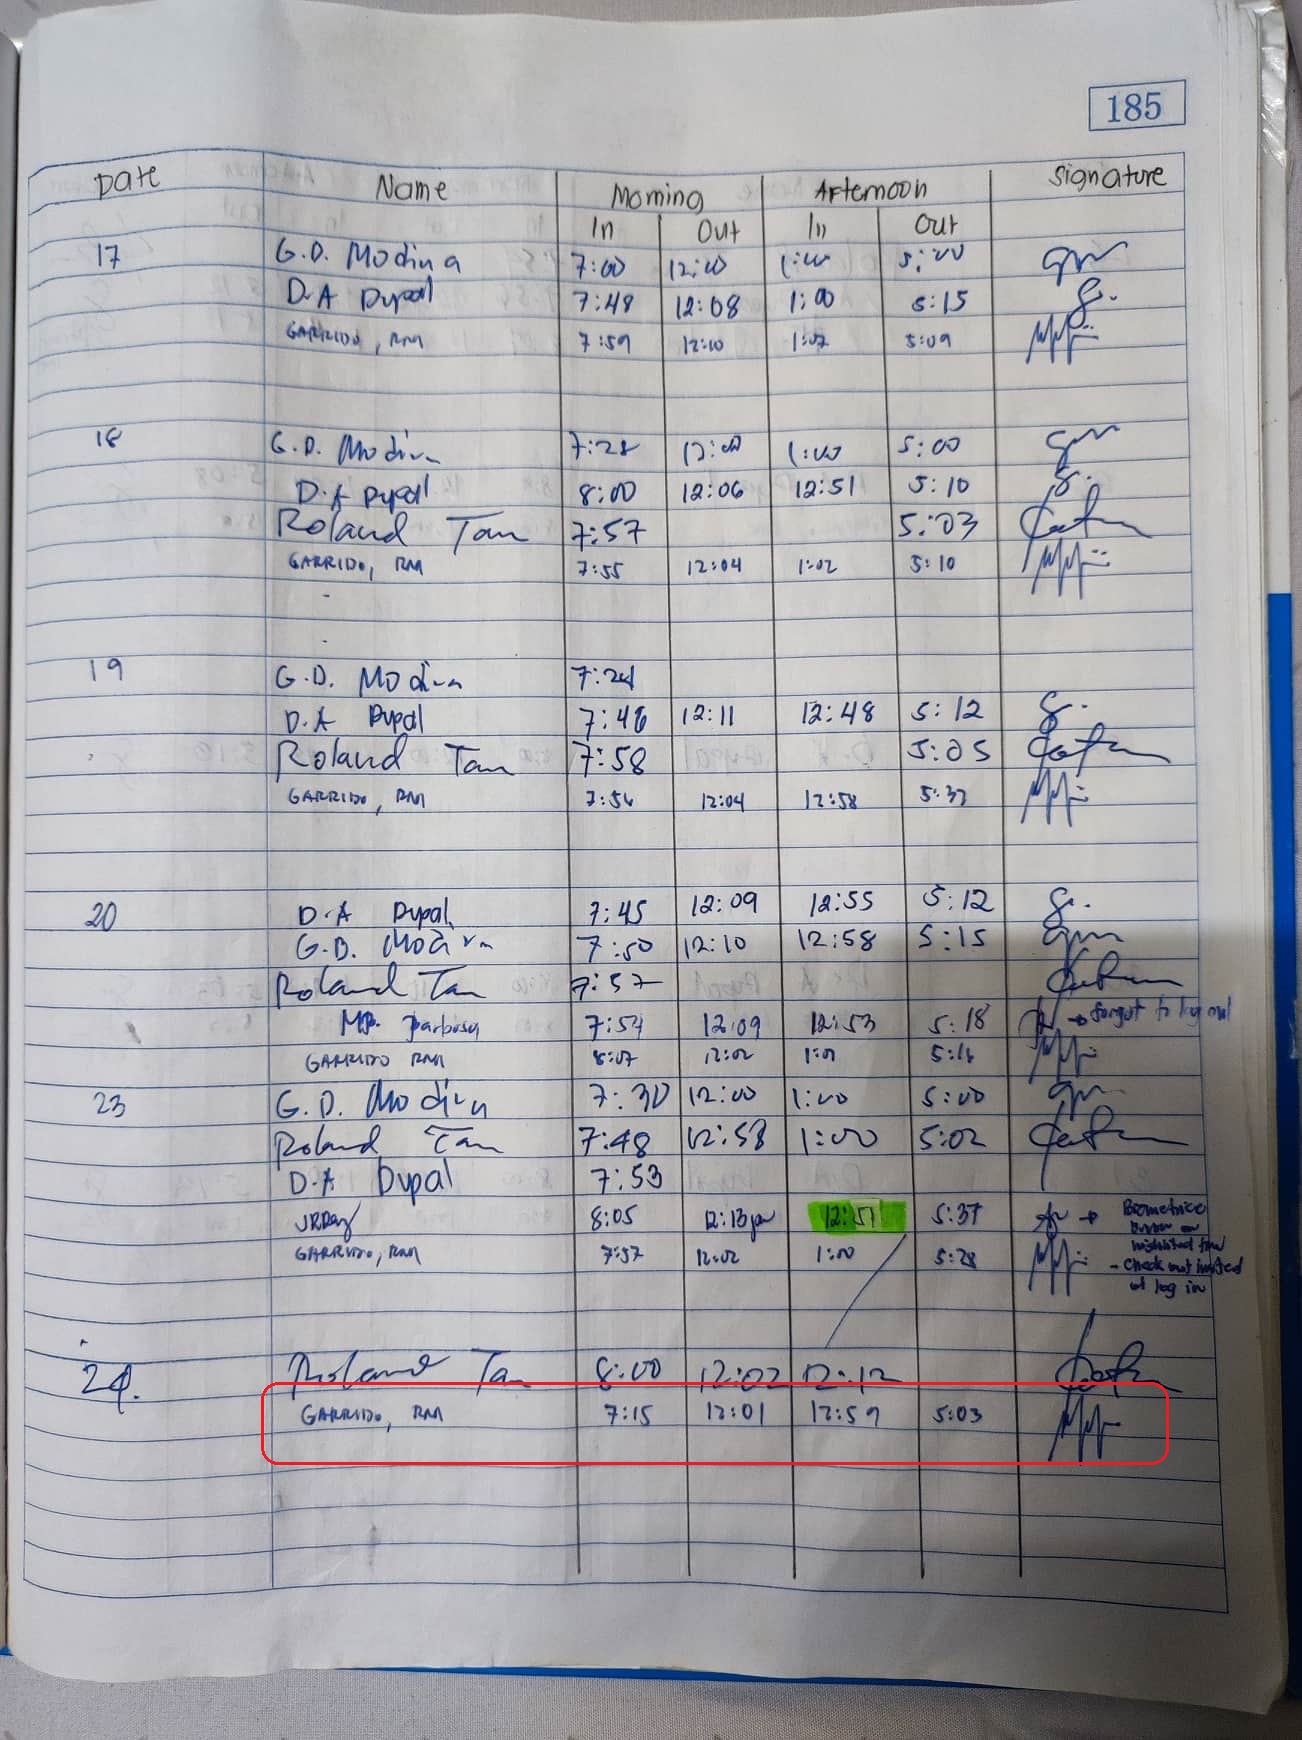 185
Date Name Morning Afternoon Signature
In Out In Out
17 G.D. Modina 7:00 12:00 1:00 5:00
D.A Dupal 7:48 12:08 1:00 5:15
GARRIDO, RM 7:59 12:10 1:02 5:09
18 G.D. Modina 7:28 12:00 1:00 5:00
D.A Dupal 8:00 12:06 12:51 5:10
Roland Tan 7:57 5:03
GARRIDO, RM 7:55 12:04 1:02 5:10
19 G.D. Modina 7:24
D.A Dupal 7:46 12:11 12:48 5:12
Roland Tan 7:58 5:05
GARRIDO, RM 7:56 12:04 12:58 5:37
20 D.A Dupal 7:45 12:09 12:55 5:12
G.D. Modina 7:50 12:10 12:58 5:15
Roland Tan 7:57
MP. Barbosa 7:54 12:09 12:53 5:18 → forgot to log out
GARRIDO RM 8:07 12:02 1:01 5:16
23 G.D. Modina 7:30 12:00 1:00 5:00
Roland Tan 7:48 12:58 1:00 5:02
D.A Dupal 7:53
8:05 12:13pm 12:51 5:37 → Biometrics
GARRIDO, RM 7:57 12:02 1:00 5:28
- check out instead
of log in
24. Roland Tan 8:00 12:02 12:12
GARRIDO, RM 7:15 12:01 12:59 5:03